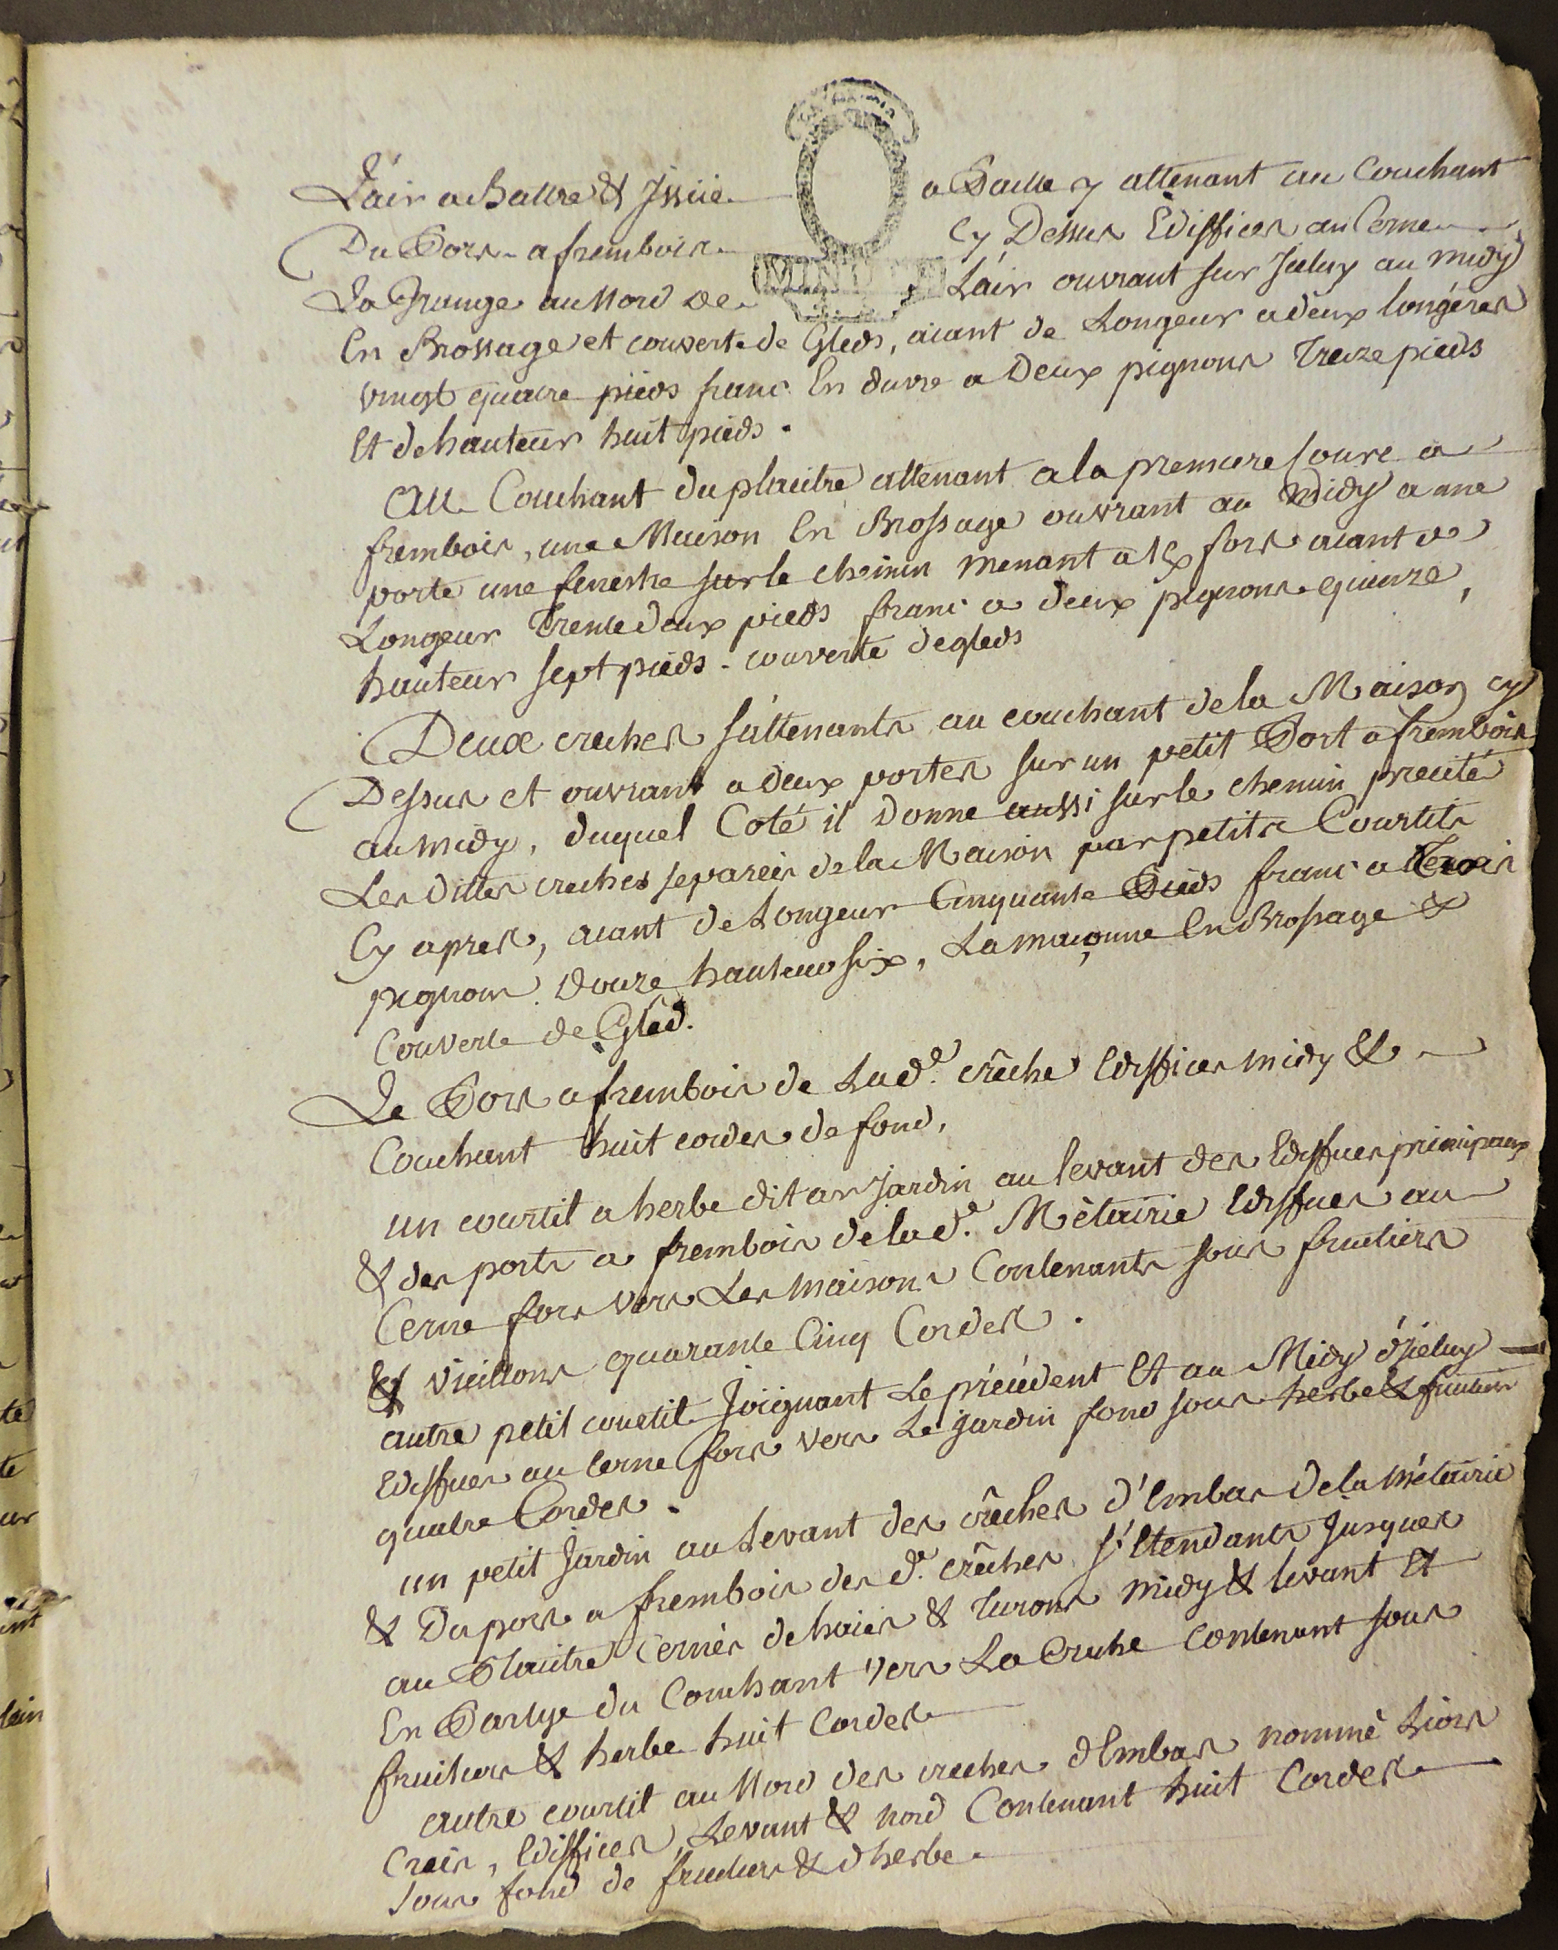 L'air a Battre & Issüe a Paille y attenant au Couchant
Du Pors a frembois Cy Dessus Ediffices au Cerne
La Grange au Nord de L'air ouvrant sur Iceluy au midy
En Brossage et couverte de Gleds, aiant de Longeur a deux longéres
vingt quatre pieds franc En duvre a Deux pignons Treize pieds
Et de hauteur huit pieds.
Au Couchant du placitre attenant a la premiere soure a
frembois, une Maison En Brossage ouvrant au Midy a une
porte une fenestre sur le chemin menant a fors aiant de
Longeur Trente deux pieds franc a deux pignons quinze,
hauteur sept pieds - couverte de gleds
Deux creches s'attenants au couchant de la Maison cy
Dessus et ouvrant a deux portes sur un petit Port a frembois
au midy, duquel Coté il Donne aussi sur le chemin precité
Les dittes creches separées de la Maison par petits Courtils
Cy apres, aiant de Longeur Cinquante Pieds franc a Trois
pignons Douze hauteur six, La maçonne En Brossage &
Couverte de Gléd.
Le Pors a frembois de La de. crêche Ediffices midy &
Couchant huit cordes de fond,
un courtil a herbe dit ar Jardin au levant des Ediffices principaux
& des ports a frembois de la de. Mètairie Ediffices au
Cerne fors vers Les maisons Contenants sous fruitiers
& vieillons quarante Cinq Cordes.
autre petit courtil Joignant Le précédent Et au Midy d'jceluy
Ediffices au Cerne fors vers Le jardin fond sous herbe & fruitiers
quatre Cordes.
un petit Jardin au Levant des crêches d'Embas de la métairie
& Du pors a frembois des de. crêches s'Etendants Jusques
au Placitre Cernés de haies & Turons midy & levant Et
En Partye du Couchant vers La Creche Contenant sous
fruitiers & herbe huit Cordes
autre courtil au Nord des creches d'Embas nommé Liors
Creis, Ediffices Levant & nord Contenant huit Cordes
sous fond de fruitiers & d'herbe